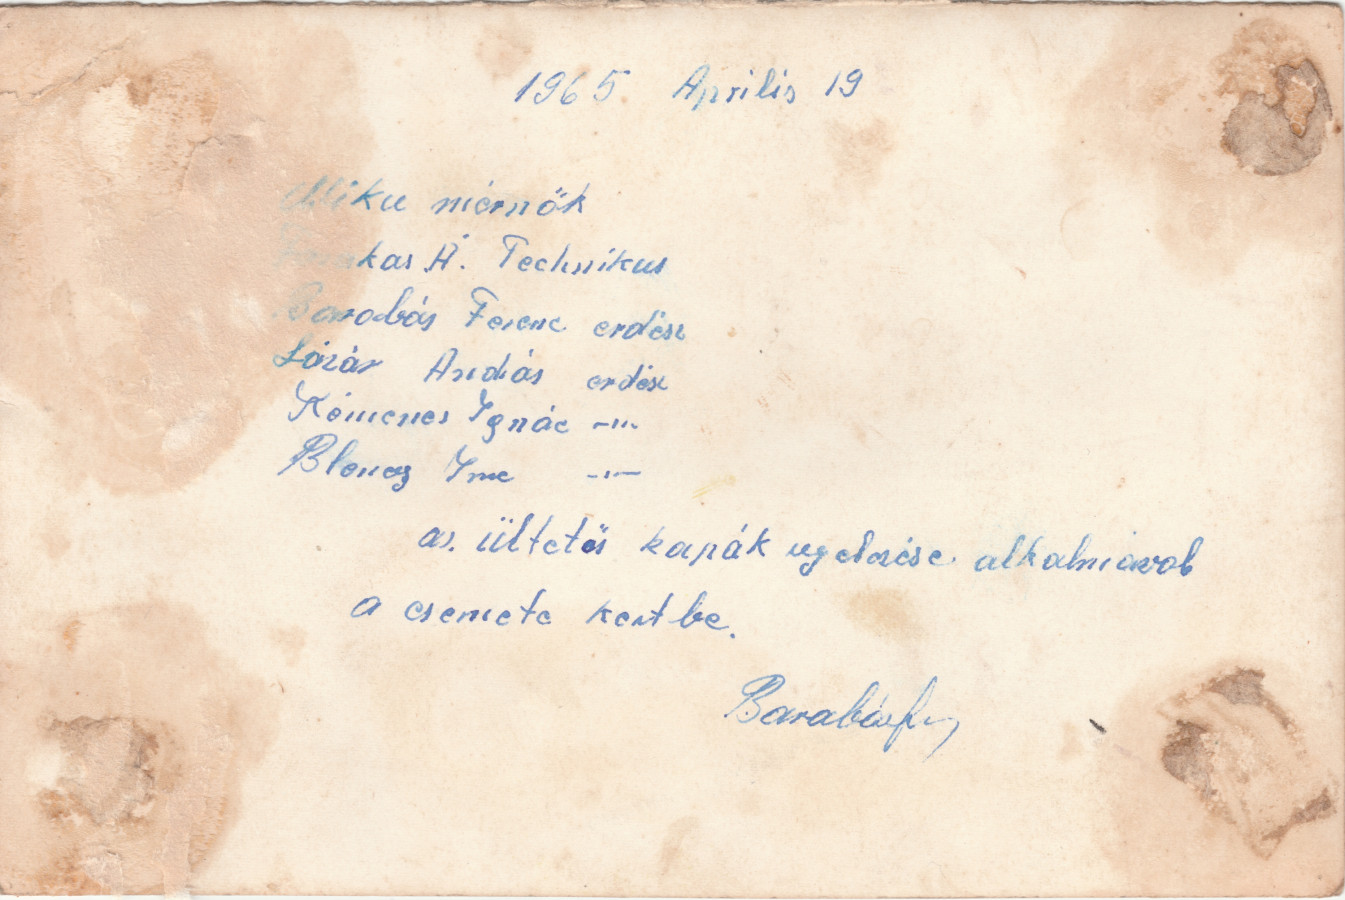 1965 Aprilis 19
Miku mérnők
Farkas Á. Technikus
Barabás Ferenc erdész
Lázár András erdész
Kémenes Ignác -"-
Imre -"-
az ültetős kapák alkalmával
a csemete kertbe.
Barabás